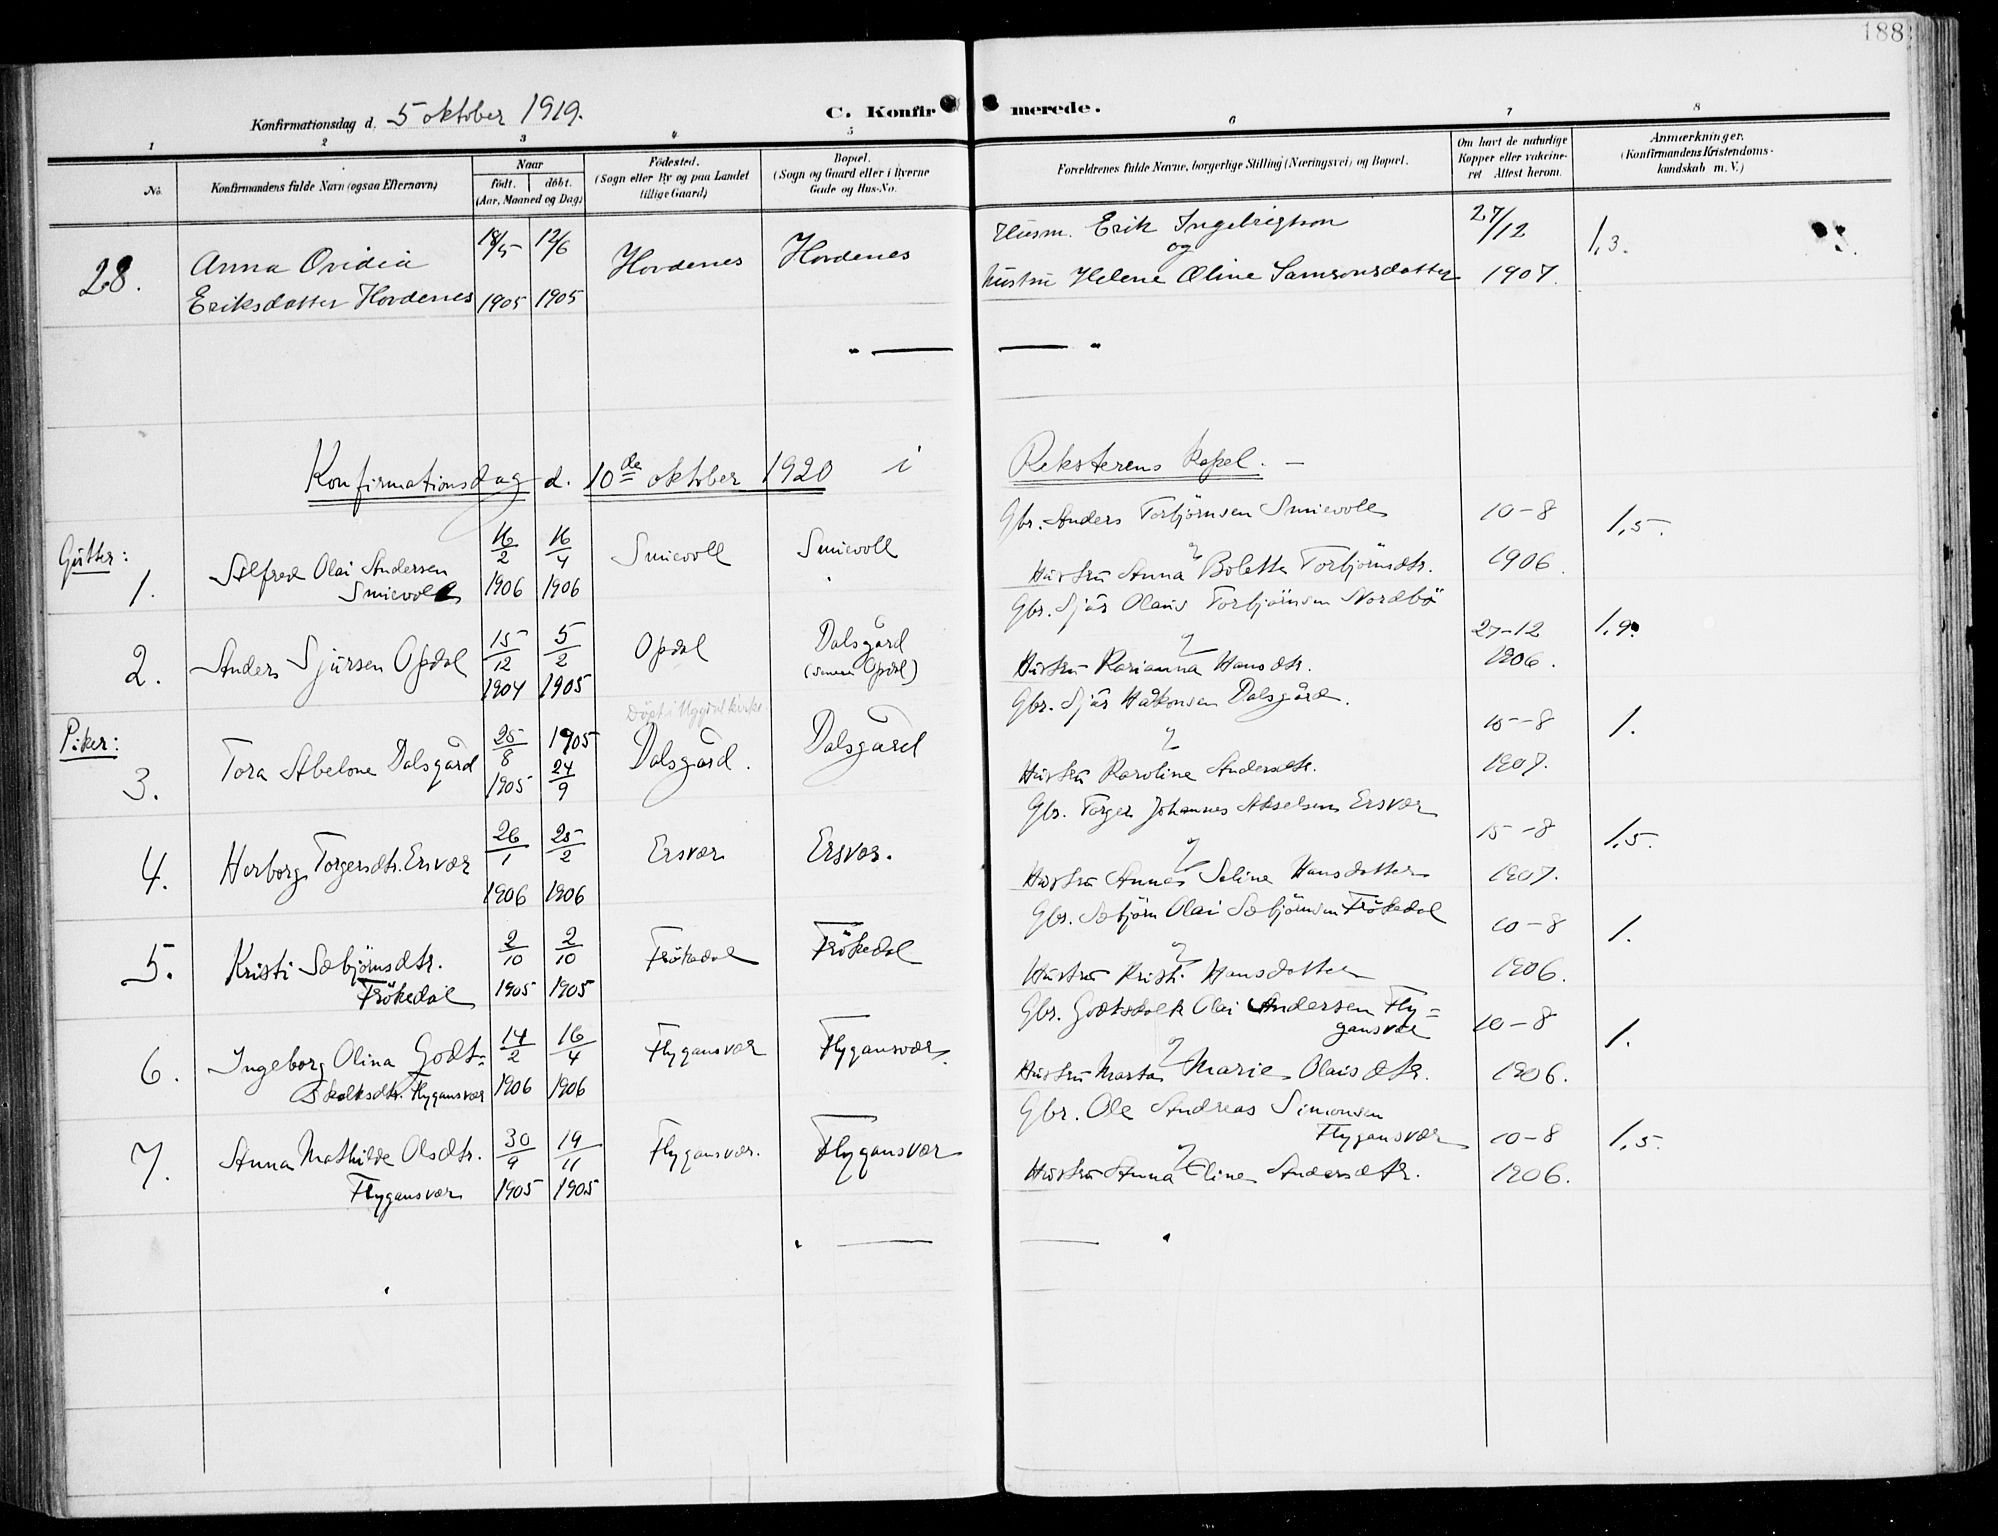 188
Konfirmationsdag d. 5 oktober 1919.
C. Konfirmerede.
1 2 3 4 5 6 7 8
No.
Konfirmandens fulde Navn (ogsaa Efternavn)
Naar
født. døbt.
(Aar, Maaned og Dag)
Fødested.
(Sogn eller By og paa Landet
tillige Gaard)
Bopæl.
(Sogn og Gaard eller i Byerne
Gade og Hus-No.
Forældrenes fulde Navne, borgerlige Stilling (Næringsvei) og Bopæl.
Om havt de naturlige
Kopper eller vakcine-
ret Attest herom.
Anmærkninger.
(Konfirmandens Kristendoms-
kundskab m. V.)
28. Anna Ovidia
Eriksdatter Hovdenes
18/5 1905
12/6 1905
Hovdenes
Hovdenes
Husm. Erik Ingebrigtson
og
Hustru Helene Oline Samsonsdatter
27/12
1907.
1,3.
Konfirmationsdag d. 10de oktober 1920 i Reksterens Kapel. –
Gutter:
1. Alfred Olai Andersen
Smievoll
16/2 1906
16/4 1906
Smievoll
Smievoll
Gbr. Anders Torbjørnsen Smievoll
Hustru Anna Bolette Torbjørnsdtr.
10-8
1906.
1,5.
2. Anders Sjursen Opdal
15/12 1904
5/2 1905
Opdal
Dalsgård
(senere Opdal)
Gbr. Sjur Olaus Torbjørnsen Nordbö
Hustru Karianna Hansdtr.
27-12
1906.
1,9.
Piker:
3. Tora Abelone Dalsgård
25/8 1905
1905 24/9
Döpt i Uggdal kirke.
Dalsgård.
Dalsgård
Gbr. Sjur Håkonsen Dalsgård.
Hustru Karoline Andersdtr.
15-8
1907.
1.
4. Herborg Torgersdtr. Ersvær
26/1 1906
25/2 1906
Ersvær
Ersvær.
Gbr. Torger Johannes Akselsen Ersvær
Hustru Anna Seline Hansdatter
15-8
1907.
1,5.
5. Kristi Sæbjörnsdtr.
Frökedal
2/10 1905
2/10 1905
Frökedal
Frökedal
Gbr. Sæbjörn Olai Sæbjörnsen Frökedal
Hustru Kristi Hansdatter
10-8
1906.
1.
6. Ingeborg Olina Godt-
skalksdtr. Flygansvær
14/2 1906
16/4 1906
Flygansvær
Flygansvær.
Gbr. Godtskalk Olai Andersen Fly=
gansvær
Hustru Marta Marie Olaisdtr.
10-8
1906.
1.
7. Anna Mathilde Olsdtr.
Flygansvær
30/9 1905
19/11 1905
Flygansvær.
Flygansvær
Gbr. Ole Andreas Simonsen
Flygansvær
Hustru Anna Eline Andersdtr.
10-8
1906.
1,5.